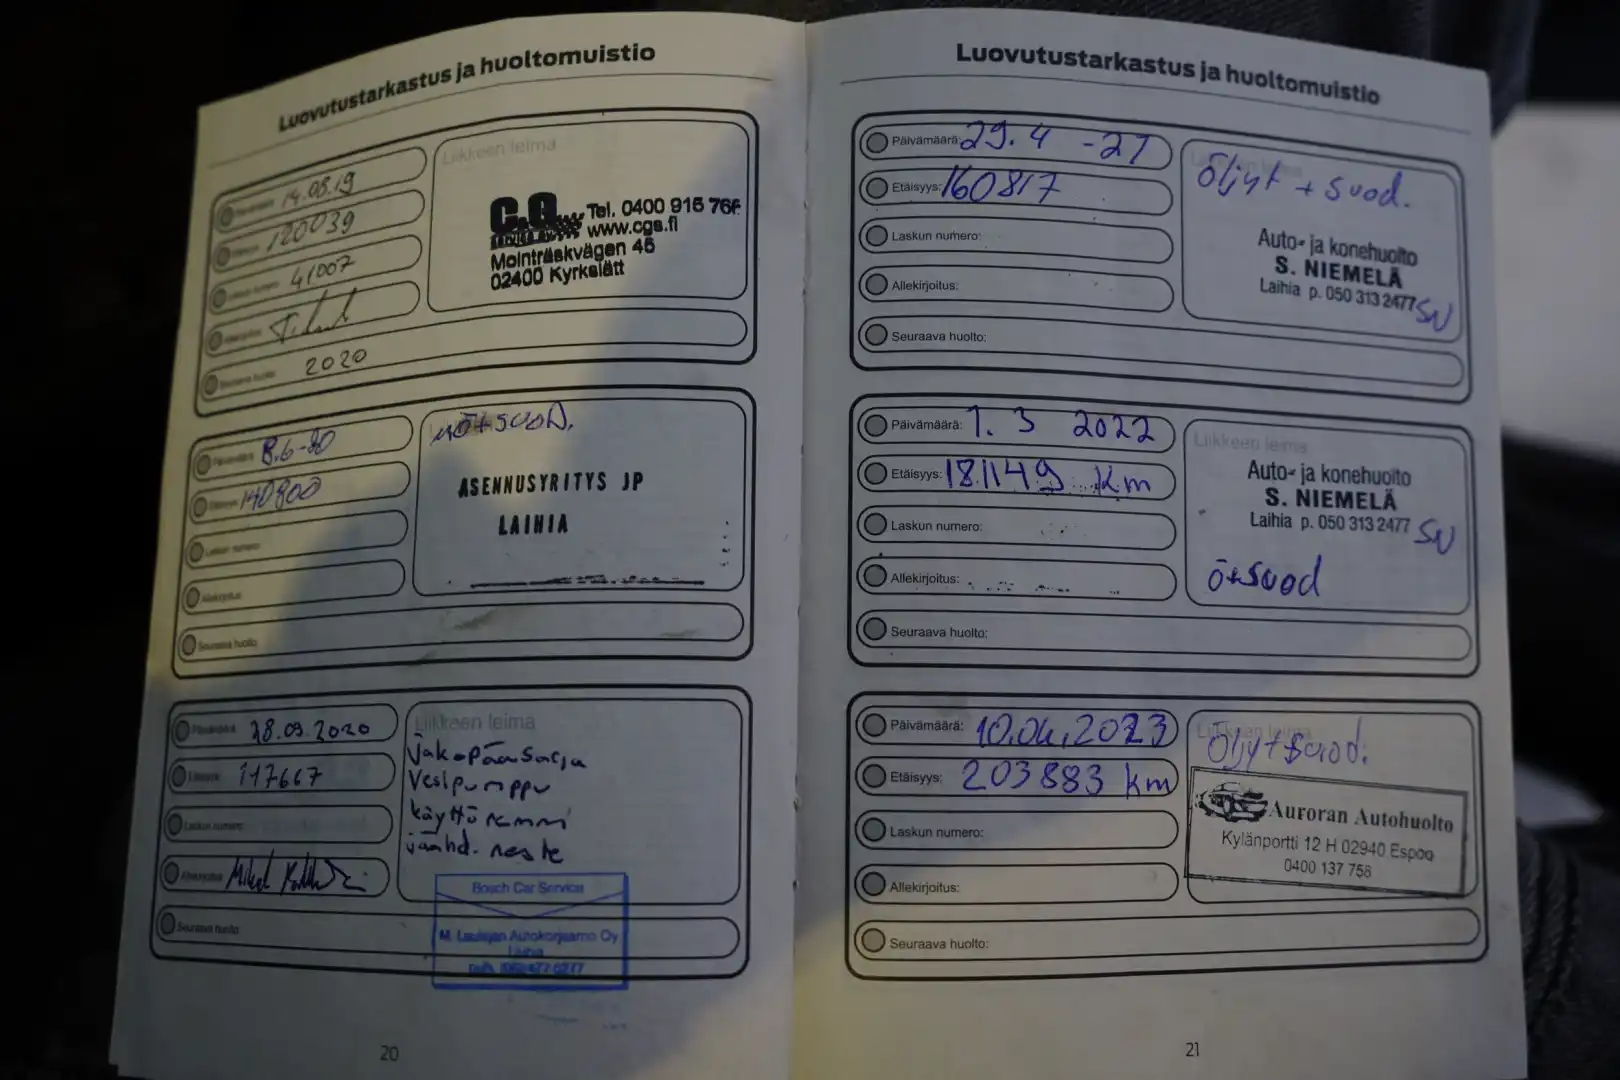 Luovutustarkastus ja huoltomuistio
14.08.19
120039
41007
2020
Liikkeen leima
C.G.
Tel. 0400 915 766
www.cgs.fi
Mointräskvägen 45
02400 Kyrkslätt
8.6-20
140800
Laskun numero:
Allekirjoitus:
Seuraava huolto:
ö+suod.
ASENNUSYRITYS JP
LAIHIA
28.09.2020
Laskun numero:
Seuraava huolto:
Liikkeen leima
Jakopääsarja
Vesipumppu
käyttöremmi
jäähd. neste
Bosch Car Service
Autokorjaamo Oy
20
Luovutustarkastus ja huoltomuistio
Päivämäärä: 29.4 -21
Etäisyys: 160817
Laskun numero:
Allekirjoitus:
Seuraava huolto:
Öljyt + suod.
Auto- ja konehuolto
S. NIEMELÄ
Laihia p. 050 313 2477
SN
Päivämäärä: 1. 3 2022
Etäisyys: 181149 km
Laskun numero:
Allekirjoitus:
Seuraava huolto:
Liikkeen leima
Auto- ja konehuolto
S. NIEMELÄ
Laihia p. 050 313 2477
SN
ö+suod
Päivämäärä: 10.04.2023
Etäisyys: 203883 km
Laskun numero:
Allekirjoitus:
Seuraava huolto:
Öljy+suod.
Auroran Autohuolto
Kylänportti 12 H 02940 Espoo
0400 137 758
21